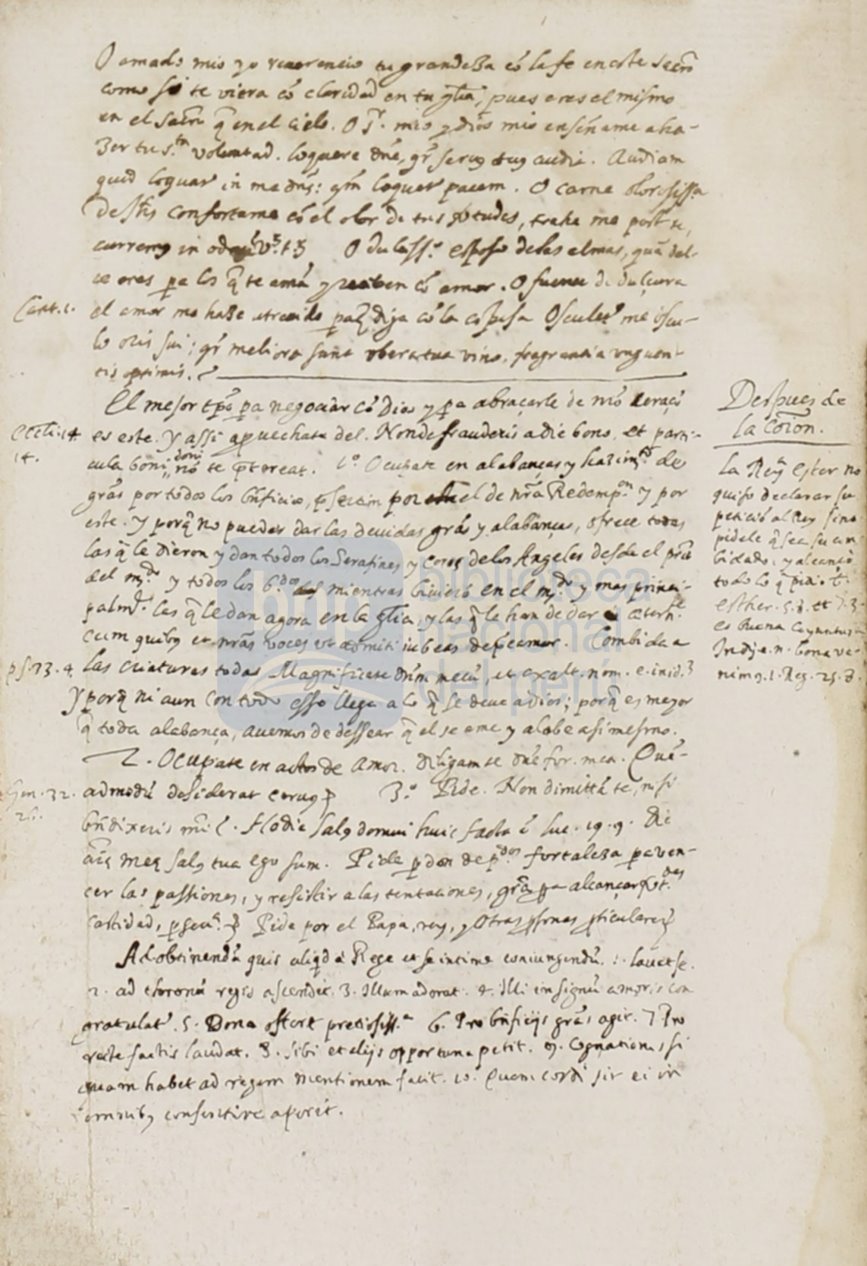 O amado mio yo reuerencio tu grandeza cõ la fe en este Sacrõ
como si te viera cõ claridad en tu glia, pues eres el mismo
en el Sacrõ q̃ en el cielo. O Sʳ. mio y dios mio enseñame a ha-
zer tu s.ᵗᵃ voluntad. loquere dñe, qʳ seruus tuus audit. Audiam
quid loquatur in me dñs: qm̃ loquetʳ pacem. O carne olorosissᵃ
de Xp̃s confortame cõ el olor de tus virtudes, trahe me post te,
curremus in odorẽ
O dulcissᵒ. esposo de las almas, quã dul-
ce eres pa los q̃ te amã y reciben cõ amor. O fuente de dulçura
Cant. 1.
el amor me haze atreuido paq̃ diga cõ la esposa Osculetʳ me oscu-
lo oris sui; qʳ meliora sunt vbera tua vino, fragrantia vnguen-
tis optimis.
El mejor tp̃o pa negociar cõ Dios y pa abraçarle de nrõ coraçõ
Despues de
la Comõn.
Eccli. 14
14.
es este. y assi aprouechate del. Non defrauderis a die bono, et parti-
cula boni doni nõ te prætereat. 1ᵒ. Ocupate en alabanças y hazimᵗᵒ de
grãs por todos los bñficios, p̃sertim por el de nrã Redempᵒⁿ y por
este. y porq̃ no puedes dar las deuidas grãs y alabanças, ofrece todas
las q̃ le dieron y dan todos los Serafines y coros de los Angeles desde el prīo
del mᵈᵒ y todos los bᵈᵒˢ mientras biuierõ en el mᵈᵒ y mas princi-
palmᵗᵉ las q̃ le dan agora en la glia, y las q̃ le han de dar
cum quibus et nrãs voces vt admitti iubeas deprecamur. Combida a
ps. 33. 4
las criaturas todas Magnificate dñm mecũ, et exalt. nom. e. in id.
y porq̃ ni aun con todo esso llega a lo q̃ se deue a dios; porq̃ es mejor
q̃ toda alabança, auemos de dessear q̃ el se ame y alabe a si mesmo.
2. Ocupate en actos de amor. Diligam te dñe for. mea. Quẽ-
Gen. 32.
26.
admodũ desiderat ceruus
3.ᵒ Pide. Non dimittã te, nisi
bñdixeris mihi. Hodie salus domui huic facta ẽ luc. 19. 9. Dic
aīæ meæ Salus tua ego sum. Pide p̃don de pᵈᵒˢ fortaleza pa ven-
cer las passiones, y resistir a las tentaciones, grã pa alcançar
castidad,
Pide por el Papa, rey, y otras p̃sonas p̃ticulares
Ad obtinendũ quis aliqd a Rege et se intime coniungendũ. 1. lauet se.
2. ad thronũ regis ascendit. 3. Illum adorat. 4. Illi in signũ amoris con
gratulatʳ. 5. Dona offert pretiosissᵃ 6. Pro bñficijs grãs agit. 7 Pro
recte factis laudat. 8. sibi et alijs opportune petit. 9. Cognationẽ, si
quam habet ad regem mentionem facit. 10. Quem cordi sit ei in
omnibus consentire aperit.
La Reyna Ester no
quiso declarar su
peticiõ al Rey sino
pidele q̃ sea su cõ
bidado: y alcançò
todo lo q̃ pidiò
Esther. 5. 8. et 7. 3.
es buena coyuntura
In die .n. bona ve-
nimus. 1. Reg. 25. 8.